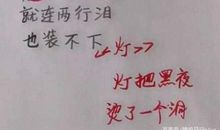 就连两行泪
也装不下
《灯》
灯把黑夜
烫了一个洞